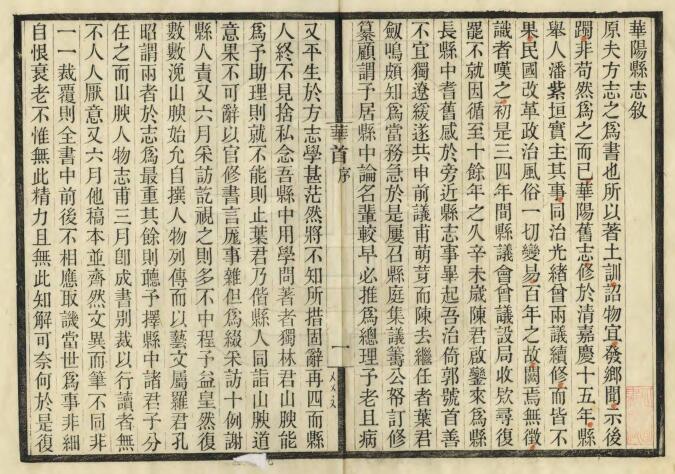 華陽縣志敘
原夫方志之為書也所以著土訓詔物宜發鄉聞示後
躅非苟然為之而已華陽舊志修於清嘉慶十五年縣
舉人潘紫垣實主其事同治光緒曾兩議續修而皆不
果民國改革政治風俗一切變易百年之故闕焉無徵
識者嘆之初是三四年間縣議會曾議設局收欵尋復
罷不就因循至十餘年之久辛未歲陳君啟鑾來為縣
長縣中耆舊感於旁近縣志事畢起吾治倚郭號首善
不宜獨遼緩遂共申前議甫萌芽而陳去繼任者葉君
劍鳴頗知為當務急於是屢召縣庭集議籌公帑訂修
纂顧謂予居縣中論名輩較早必推為總理予老且病
華首
序
一
又平生於方志學甚茫然將不知所措固辭再四而縣
人終不見捨私念吾縣中用學問著者獨林君山腴能
為予助理則就不能則止葉君乃偕縣人同詣山腴道
意果不可辭以官修書言厖事雜但為綴采訪十例謝
縣人責又六月采訪訖視之則多不中程予益皇然復
數數浼山腴始允自撰人物列傳而以藝文屬羅君孔
昭謂兩者於志為最重其餘則聽予擇縣中諸君子分
任之而山腴人物志甫三月卽成書別裁以行讀者無
不人人厭意又六月他稿本並齊然文異而筆不同非
一一裁覆則全書中前後不相應取譏當世為事非細
自恨衰老不惟無此精力且無此知解可奈何於是復